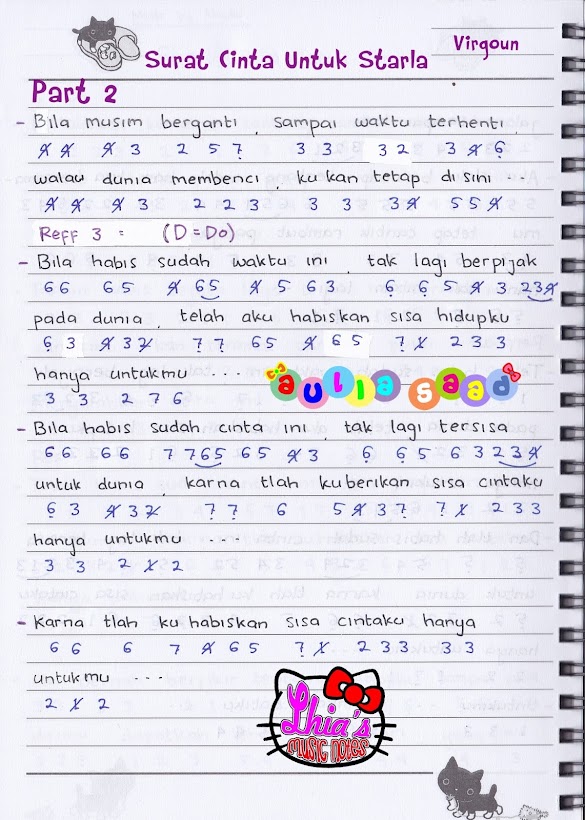 Surat Cinta Untuk Starla
Virgoun
Part 2
- Bila musim berganti, sampai waktu terhenti,
4 4 4 3 2 5 7 3 3 3 2 3 4 6
walau dunia membenci, ku kan tetap disini ...
4 4 4 3 2 2 3 3 3 3 3 4 5 5 4
Reff 3 : (D = Do)
- Bila habis sudah waktu ini, tak lagi berpijak
6 6 6 5 4 65 4 5 6 3 6 6 5 4 3 234
pada dunia, telah aku habiskan sisa hidupku
6 3 4 3 2 7 7 6 5 4 6 5 7 1 2 3 3
hanya untukmu ....
aulia saad
3 3 2 7 6
- Bila habis sudah cinta ini, tak lagi tersisa
6 6 6 6 7 765 6 5 4 3 6 6 5 6 3 234
untuk dunia, karna tlah kuberikan sisa cintaku
6 3 4 3 2 7 7 6 5 4 3 7 7 1 2 3 3
hanya untukmu ....
3 3 2 1 2
- Karna tlah ku habiskan sisa cintaku hanya
6 6 6 7 4 6 5 7 1 2 3 3 3 3
untukmu ...
2 1 2
Lhia's
MUSIC NOTES